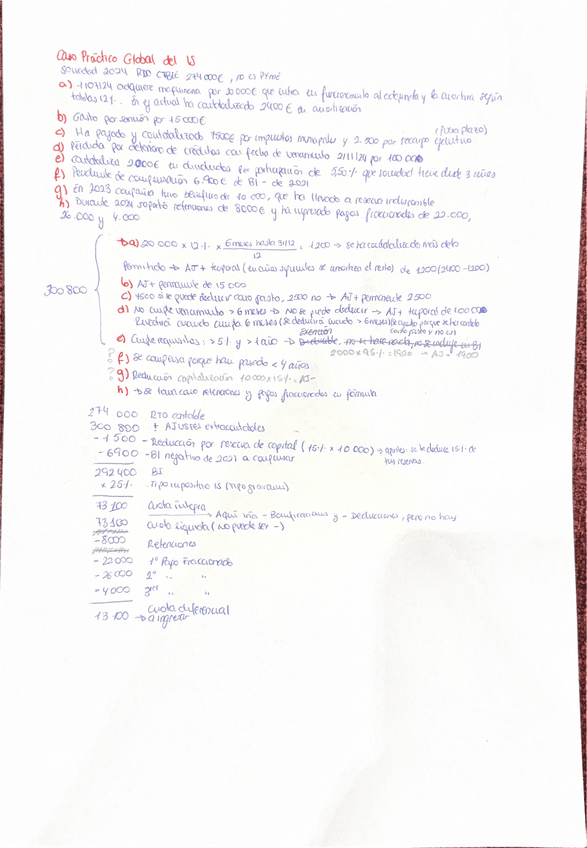 Caso Práctico Global del IS
Sociedad 2024 RTO CTBLE 274000€, no es PYme
a) 1/07/24 adquiere maquinaria por 20000€ que entra en funcionamiento al adquirirla y la amortiza según
tablas 12%. En el actual ha contabilizado 2400€ en amortización
b) Gasto por sanción por 15000€
c) Ha pagado y contabilizado 4500€ por impuestos municipales y 2.500 por recargo ejecutivo (fuera plazo)
d) Pérdida por deterioro de créditos con fecha de vencimiento 2/11/24 por 100 000
e) Contabiliza 2000€ en dividendos por participación de 5,50% que sociedad tiene desde 3 años
f) Pendiente de compensación 6.900€ de BI - de 2021
g) En 2023 compañía tuvo beneficio de 10 000, que ha llevado a reserva indisponible
h) Durante 2024 soportó retenciones de 8000€ y ha ingresado pagos fraccionados de 22.000,
26.000 y 4.000
300800
a) 20 000 x 12% x 6 meses hasta 31/12 / 12 = 1200 → se ha contabilizado de más de lo
Permitido → AJ + temporal (en años siguientes se amortiza el resto) de 1200 (2400-1200)
b) AJ + permanente de 15 000
c) 4500 si se puede deducir como gasto, 2500 no → AJ + permanente 2500
d) No cumple vencimiento > 6 meses → No se puede deducir → AJ + temporal de 100 000
Revertirá cuando cumpla 6 meses (se deducirá cuando > 6 meses) Se ajusta porque se ha contab
como gasto y no es
Exención
e) Cumple requisitos: > 5% y > 1 año → Deducible, no se hace nada, no se incluye en BI
2000 x 95% = 1900 → AJ - 1900
? f) Se compensa porque han pasado < 4 años
? g) Reducción capitalización 10 000 x 15% AJ-
h) → se toma como retenciones y pagos fraccionados en fórmula
274 000 RTO contable
300 800 + AJUSTES extracontables
- 1 500 - Reducción por reserva de capital (15% x 10 000) → aportes: se te deduce 15% de
tus reservas
- 6900 - BI negativa de 2021 a compensar
292 400 BI
x 25% Tipo impositivo IS (tipo gravamen)
73 100 Cuota íntegra
→ Aquí iría - Bonificaciones y - Deducciones, pero no hay
73 100 Cuota líquida (No puede ser -)
- 8000 Retenciones
- 22000 1º Pago Fraccionado
- 26000 2º " "
- 4000 3er " "
Cuota diferencial
13 100 → a ingresar